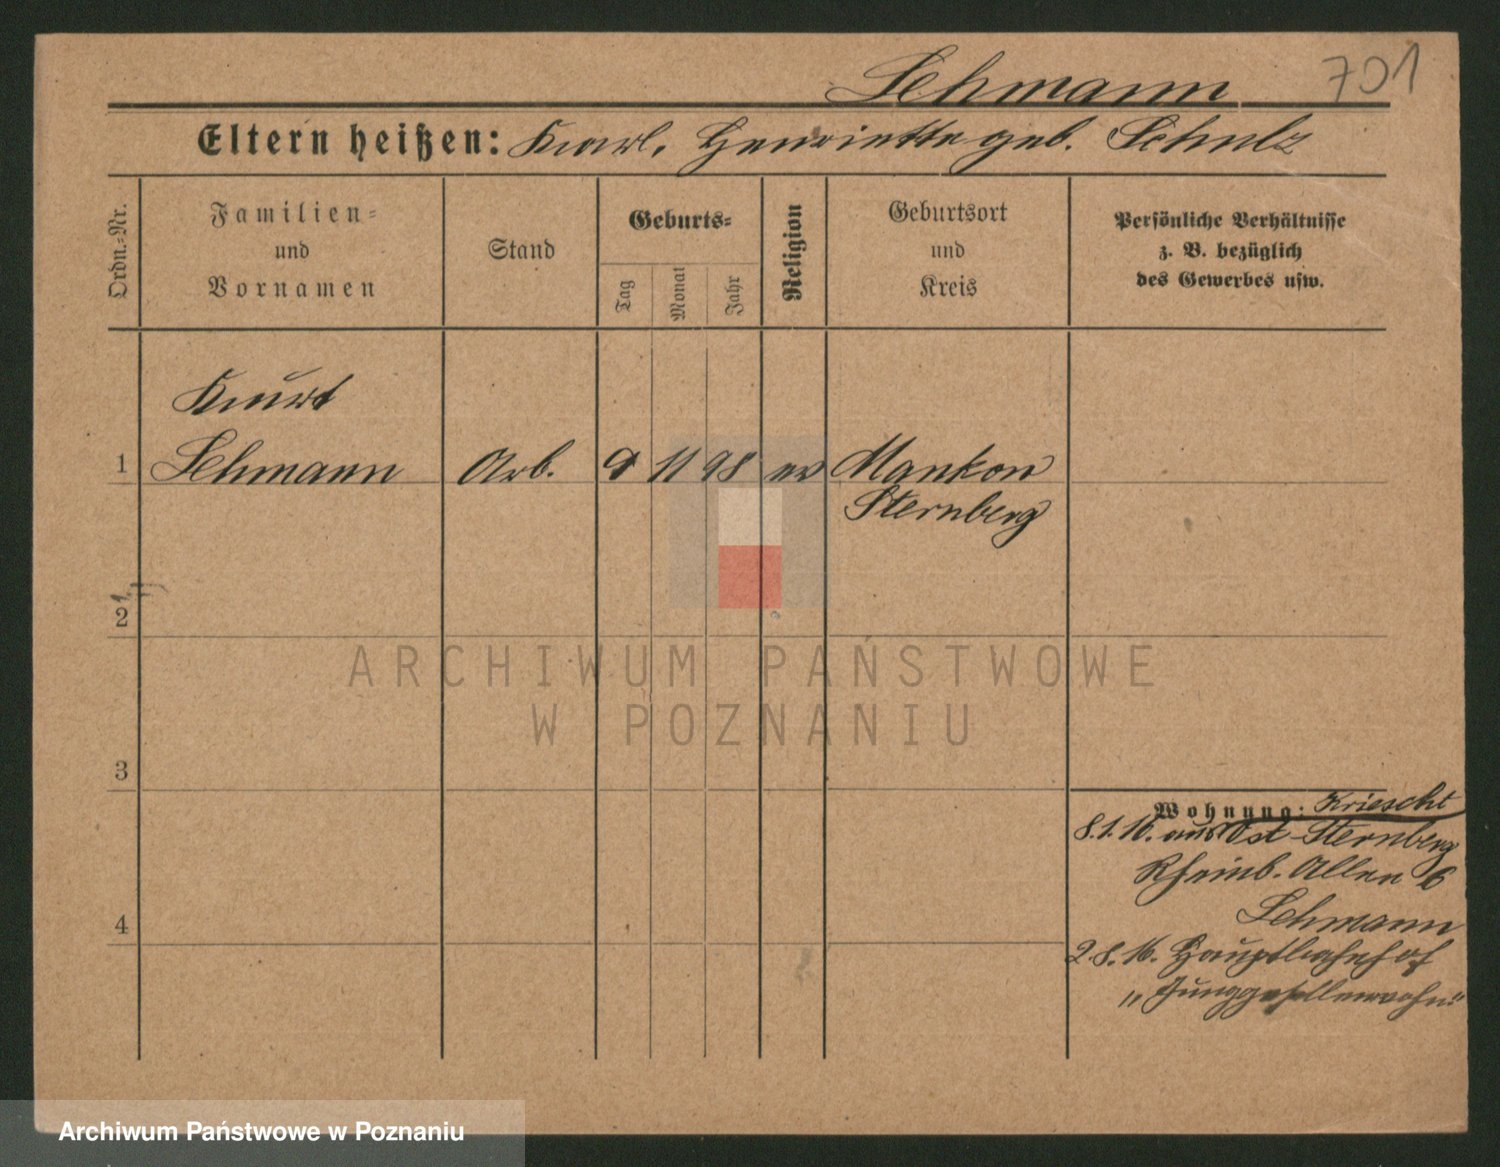 Lehmann 701
Eltern heißen: Karl, Henriette geb. Schulz
Ordn.-Nr.
Familien-
und
Vornamen
Stand
Geburts-
Tag
Monat
Jahr
Religion
Geburtsort
und
Kreis
Persönliche Verhältnisse
z. B. bezüglich
des Gewerbes usw.
Kurt
1 Lehmann Arb. 9 11 98 ev Mankow
Sternberg
2
3
4
Wohnung: Kriescht
8.1.16. aus Ost-Sternberg
Rheinb. Allee 6
Lehmann
2.8.16. Hauptbahnhof
"Junggesellenwohn."
ARCHIWUM PAŃSTWOWE
W POZNANIU
Archiwum Państwowe w Poznaniu